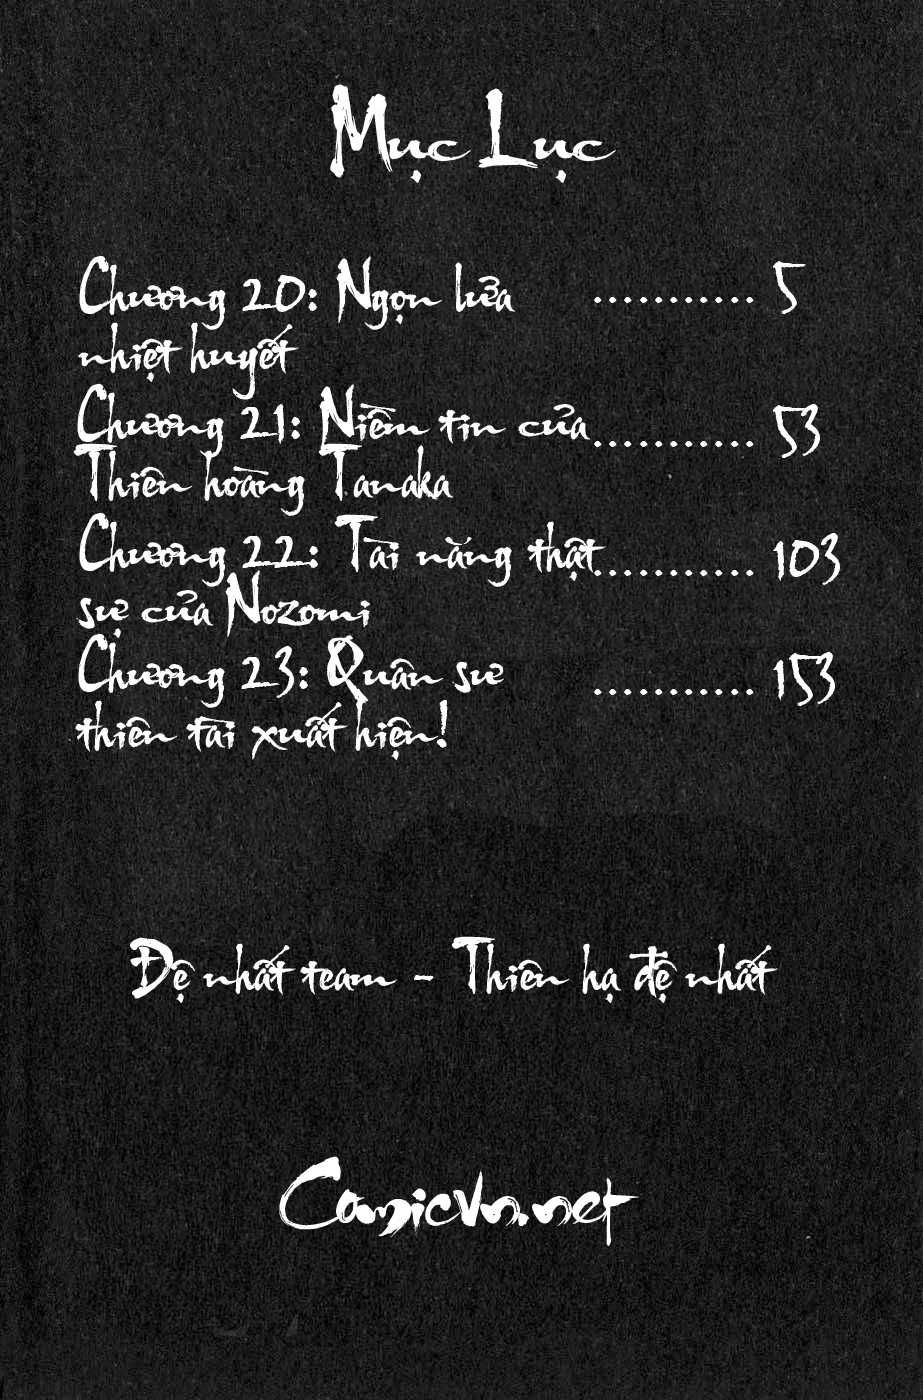 Mục Lục
Chương 20: Ngọn lửa ........... 5
nhiệt huyết
Chương 21: Niềm tin của ........... 53
Thiên hoàng Tanaka
Chương 22: Tài năng thật ........... 103
sự của Nozomi
Chương 23: Quân sư ........... 153
thiên tài xuất hiện!
Đệ nhất team - Thiên hạ đệ nhất
Comicvn.net